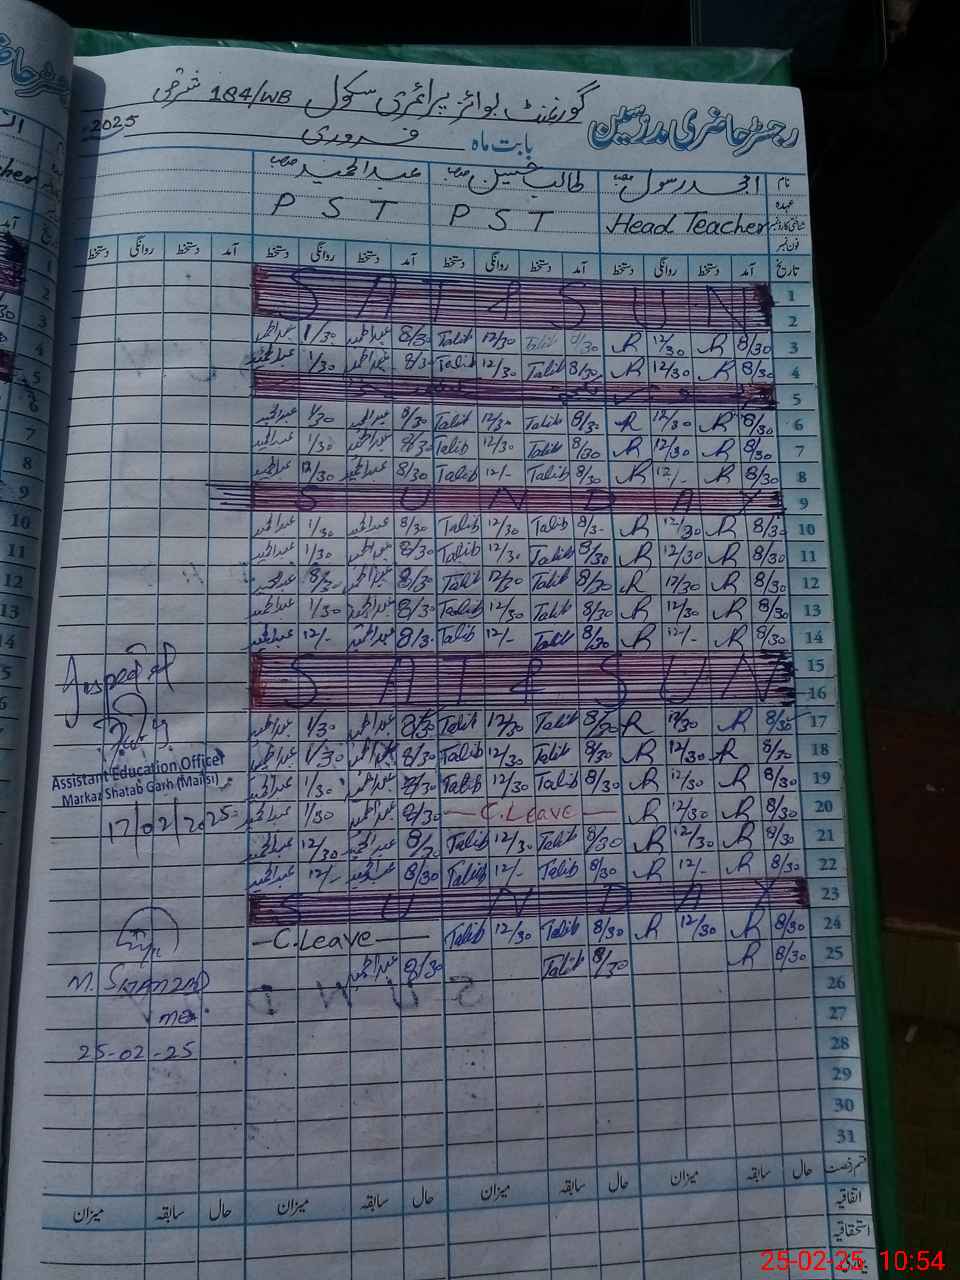 رجسٹر حاضری مدرسین
گورنمنٹ بوائز پرائمری سکول 184/WB شرقی
بابت ماہ فروری 2025
نام امجد رسول صاحب طالب حسین صاحب عبدالحمید صاحب
عہدہ Head Teacher PST PST
شناختی کارڈ نمبر
فون نمبر
تاریخ آمد دستخط روانگی دستخط آمد دستخط روانگی دستخط آمد دستخط روانگی دستخط آمد دستخط روانگی دستخط
1 SAT & SUN
2
3 8/30 R 12/30 R 8/30 Talib 12/30 Talib 8/30 عبدالحمید 1/30 عبدالحمید
4 8/30 R 12/30 R 8/30 Talib 12/30 Talib 8/30 عبدالحمید 1/30 عبدالحمید
5
6 8/30 R 12/30 R 8/30 Talib 12/30 Talib 8/30 عبدالحمید 1/30 عبدالحمید
7 8/30 R 12/30 R 8/30 Talib 12/30 Talib 8/30 عبدالحمید 1/30 عبدالحمید
8 8/30 R 12/- R 8/30 Talib 12/- Talib 8/30 عبدالحمید 12/30 عبدالحمید
9 SUNDAY
10 8/30 R 12/30 R 8/3- Talib 12/30 Talib 8/30 عبدالحمید 1/30 عبدالحمید
11 8/30 R 12/30 R 8/30 Talib 12/30 Talib 8/30 عبدالحمید 1/30 عبدالحمید
12 8/30 R 12/30 R 8/30 Talib 12/30 Talib 8/30 عبدالحمید عبدالحمید
13 8/30 R 12/30 R 8/30 Talib 12/30 Talib 8/30 عبدالحمید 1/30 عبدالحمید
14 8/30 R 12/- R 8/30 Talib 12/- Talib 8/30 عبدالحمید 12/- عبدالحمید
15 SAT & SUN
16
17 8/30 R 12/30 R 8/30 Talib 12/30 Talib 8/30 عبدالحمید 1/30 عبدالحمید
18 8/30 R 12/30 R 8/30 Talib 12/30 Talib 8/30 عبدالحمید 1/30 عبدالحمید
19 8/30 R 12/30 R 8/30 Talib 12/30 Talib 8/30 عبدالحمید 1/30 عبدالحمید
20 8/30 R 12/30 R — C.Leave — 8/30 عبدالحمید 1/30 عبدالحمید
21 8/30 R 12/30 R 8/30 Talib 12/30 Talib 8/30 عبدالحمید 12/30 عبدالحمید
22 8/30 R 12/- R 8/30 Talib 12/- Talib 8/30 عبدالحمید 12/- عبدالحمید
23 SUNDAY
24 8/30 R 12/30 R 8/30 Talib 12/30 Talib — C.Leave —
25 8/30 R 8/30 Talib 8/30 عبدالحمید
26
27
28
29
30
31
قسم رخصت حال سابقہ میزان حال سابقہ میزان حال سابقہ میزان حال سابقہ میزان
اتفاقیہ
استحقاقیہ
Inspected
Assistant Education Officer
Markaz Shatab Garh (Mailsi)
17/02/2025
M. SHAHZAD
MEA
25-02-25
25-02-25 10:54